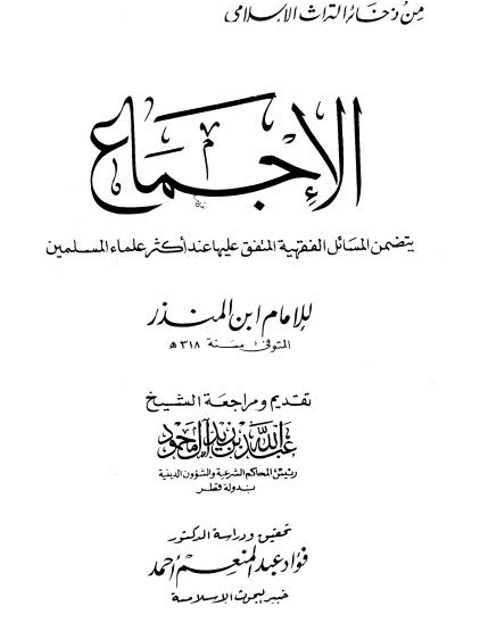 من ذخائر التراث الإسلامي
الإجماع
يتضمن المسائل الفقهية المتفق عليها عند أكثر علماء المسلمين
للإمام ابن المنذر
المتوفى سنة ٣١٨ هـ
تقديم ومراجعة الشيخ
عبد الله بن زيد آل محمود
رئيس المحاكم الشرعية والشؤون الدينية
بدولة قطر
تحقيق ودراسة الدكتور
فؤاد عبد المنعم أحمد
خبير البحوث الإسلامية